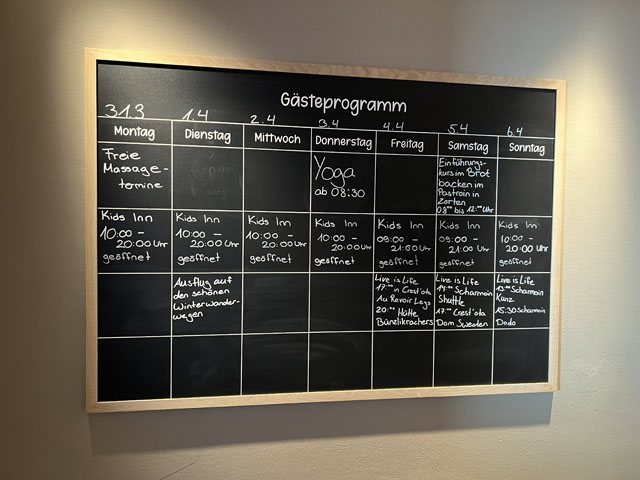 Gästeprogramm
31.3 1.4 2.4 3.4 4.4 5.4 6.4
Montag Dienstag Mittwoch Donnerstag Freitag Samstag Sonntag
Freie
Massage-
termine
Yoga
ab 08:30
Einführungs-
kurs im Brot
backen im
Pastroin in
Zorten
08°° bis 12°° Uhr
Kids Inn
10:00 -
20:00 Uhr
geöffnet
Kids Inn
10:00 -
20:00 Uhr
geöffnet
Kids Inn
10:00 -
20:00 Uhr
geöffnet
Kids Inn
10:00 -
20:00 Uhr
geöffnet
Kids Inn
09:00 -
21:00 Uhr
geöffnet
Kids Inn
09:00 -
21:00 Uhr
geöffnet
Kids Inn
10:00 -
20:00 Uhr
geöffnet
Ausflug auf
den schönen
Winterwander-
wegen
Live is Life
17°° in Crest'ota
Au Revoir Lego
20°° Hütte
Bünzlikrachers
Live is Life
14°° Scharmoin
Shuttle
17°° Crest'ota
Dom Sweden
Live is Life
13°° Scharmoin
Kunz
15:30 Scharmoin
Dodo